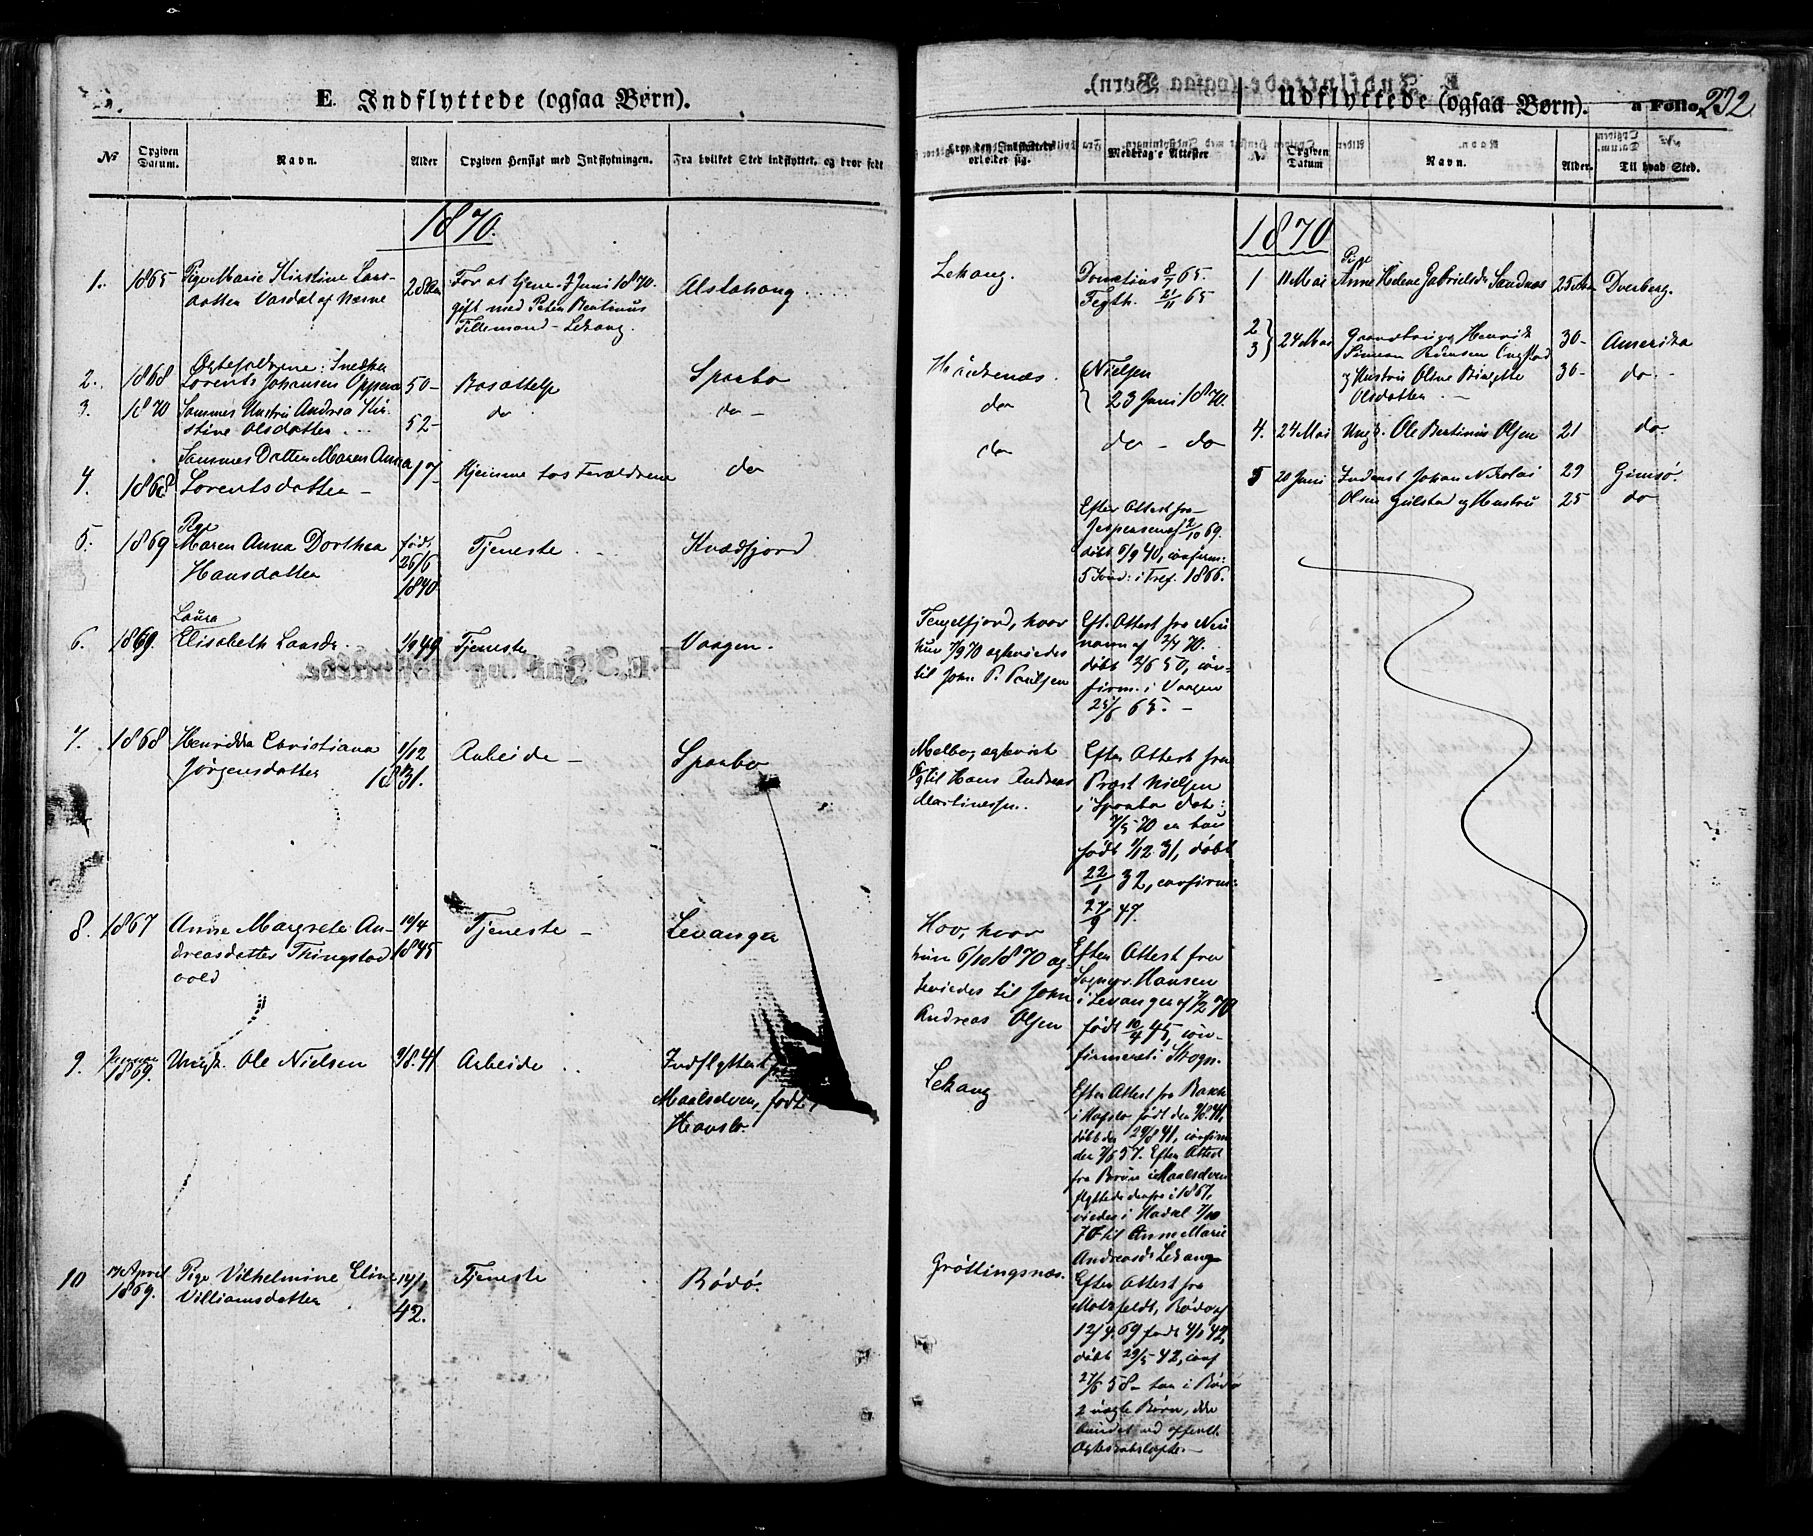 E. Indflyttede (ogsaa Børn).
№
Opgiven Datum.
Navn.
Alder
Opgiven Hensigt med Indflytningen.
Fra hvilket Sted indflyttet, og hvor født
1870.
1.
1865
Pige Marie Kirstine Lars-
datter Vasdal af Næsne
28 Aar
For at tjene. 7 Juni 1870.
gift med Peter Bentinus
Tillemand - Lekang.
Alstahoug
2.
1868
Ægtefolkene: Snedker
Lorents Johansen
50 -
Bosættelse
Sparbo
3.
1870
Sammes Hustru Andrea Kir-
stine Olsdatter
52 -
do
do -
4.
1868
Sammes Datter Maren Anna
Lorentsdatter -
17 -
Hjemme hos Forældrene
do
5.
1869
Pige
Maren Anna Dorthea
Hansdatter
født
26/6
1840
Tjeneste
Kvædfjord
6.
1869.
Laura
Elisabeth Larsdr
Tjeneste
Vaagen.
7.
1868
Henrikka Christiana
Jørgensdatter
1/12
1831.
Arbeide -
Sparbo
8.
1867
Anne Margrete An-
dreasdatter Thingstad
vold
10/4
1845
Tjeneste -
Levanger
9.
Januar
1869.
Ungk. Ole Nielsen
9/8. 41
Arbeide
Indflyttet
Maalselven, født
10
April
1869.
Pige Vilhelmine Eline
Villiamsdatter
42.
Tjeneste
Rödö.
Medbragte Attester
Lekang.
Donatius 8/7 65.
65
Nielsen
23 Juni 1870.
do
do - do
do
Efter Attest fra
Jespersen af 12/10 69.
døbt 6/9 40, confirm:
i Tref. 1866.
Tengelfjord, hvor
hun 7/9 70 egteviedes
til Joh. P. Paulsen
Eft. Attest fra Neu
mann af 2/4 70.
døbt 2/6 50, con-
firm. i Vaagen
25/6 65. -
Melbo, egteviet
til Hans Andreas
Martinussen.
Efter Attest fra
Præst Nielsen
i Sparbo dat:
7/5 70 er hun
født 1/12 31, døbt
22/1 32, confirm:
27/9 47.
Hov, hvor
hun 6/10 1870 eg-
teviedes til John
Andreas Olsen
Efter Attest fra
Sognepr. Hansen
i Levanger af 7/2 70
født 10/4 45, con-
firmeret i Skogn.
Lekang
Efter Attest fra
født den 9/8. 41,
døbt den 29/8 41, confirm
den 7/6 57. Efter Attest
fra Bruun i Maalselven
flyttede derfra i 1867,
viedes i Hadsel 7/10
70 til Anne Marie
Andreasd. Lekang
Grøttingsnæs.
Efter Attest fra
Motzfeldt, Rödö af
12/4. 69 født 4/1 42,
døbt 29/5 42, conf
27/6 58 - har i Rödö
2 uægte Børn, ikke
bundet ved offentl
Ægteskabsløfte. -
Udflyttede (ogsaa Børn).
a Folio
232.
№
Opgiven Datum
Navn.
Alder.
Til hvad Sted.
1870
1
11 Mai
Pige
Anne Helene Gabrielsdr Sandnes
25 Aar
Dverberg.
2
3
24 Mai
Gaardbruger Henrik
Simeon
30 -
Amerika
og Hustru Oline Birgitte
Olsdatter
30 -
do -
4.
24 Mai
Ungk. Ole Bertinius Olsen
21
do.
5
20 Juni
Inderst Johan Nikolai
29
Gimsö.
Olsen Gulstad og Hustru
25
do